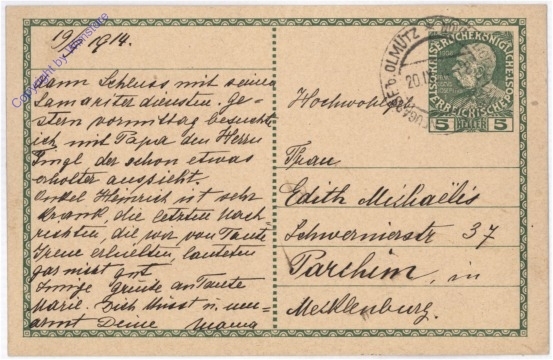 19/ 1914.
dann Schluss mit seinen
Samariterdiensten. Ge-
stern vormittag besuchte
ich mit Papa den Herrn
der schon etwas
erholter aussieht.
Onkel Heinrich ist sehr
krank, die letzten Nach-
richten, die wir von Tante
Irene erhielten, lauteten
gar nicht gut
Innige Grüsse an Tante
Marie. Dich küsst u. um-
armt Deine Mama
Hochwohlgeb.
Frau
Edith Michaëlis
Schwerinerstr 37
Parchim, in
Mecklenburg.
b. OLMÜTZ
20.II
5 HELLER 5
Copyright by